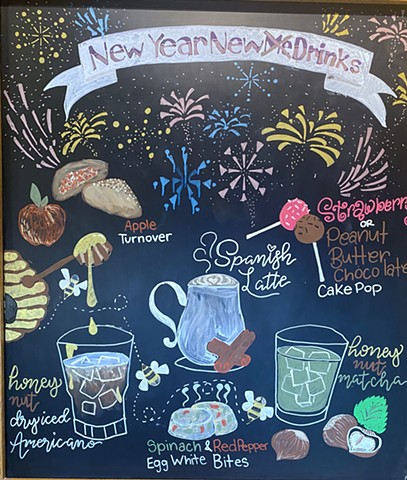 New Year New Me Drinks
Apple
Turnover
Strawberry
OR
Peanut
Butter
Chocolate
Cake Pop
Spanish
Latte
honey
nut
dry iced
Americano
honey
nut
matcha
Spinach & Red Pepper
Egg White Bites